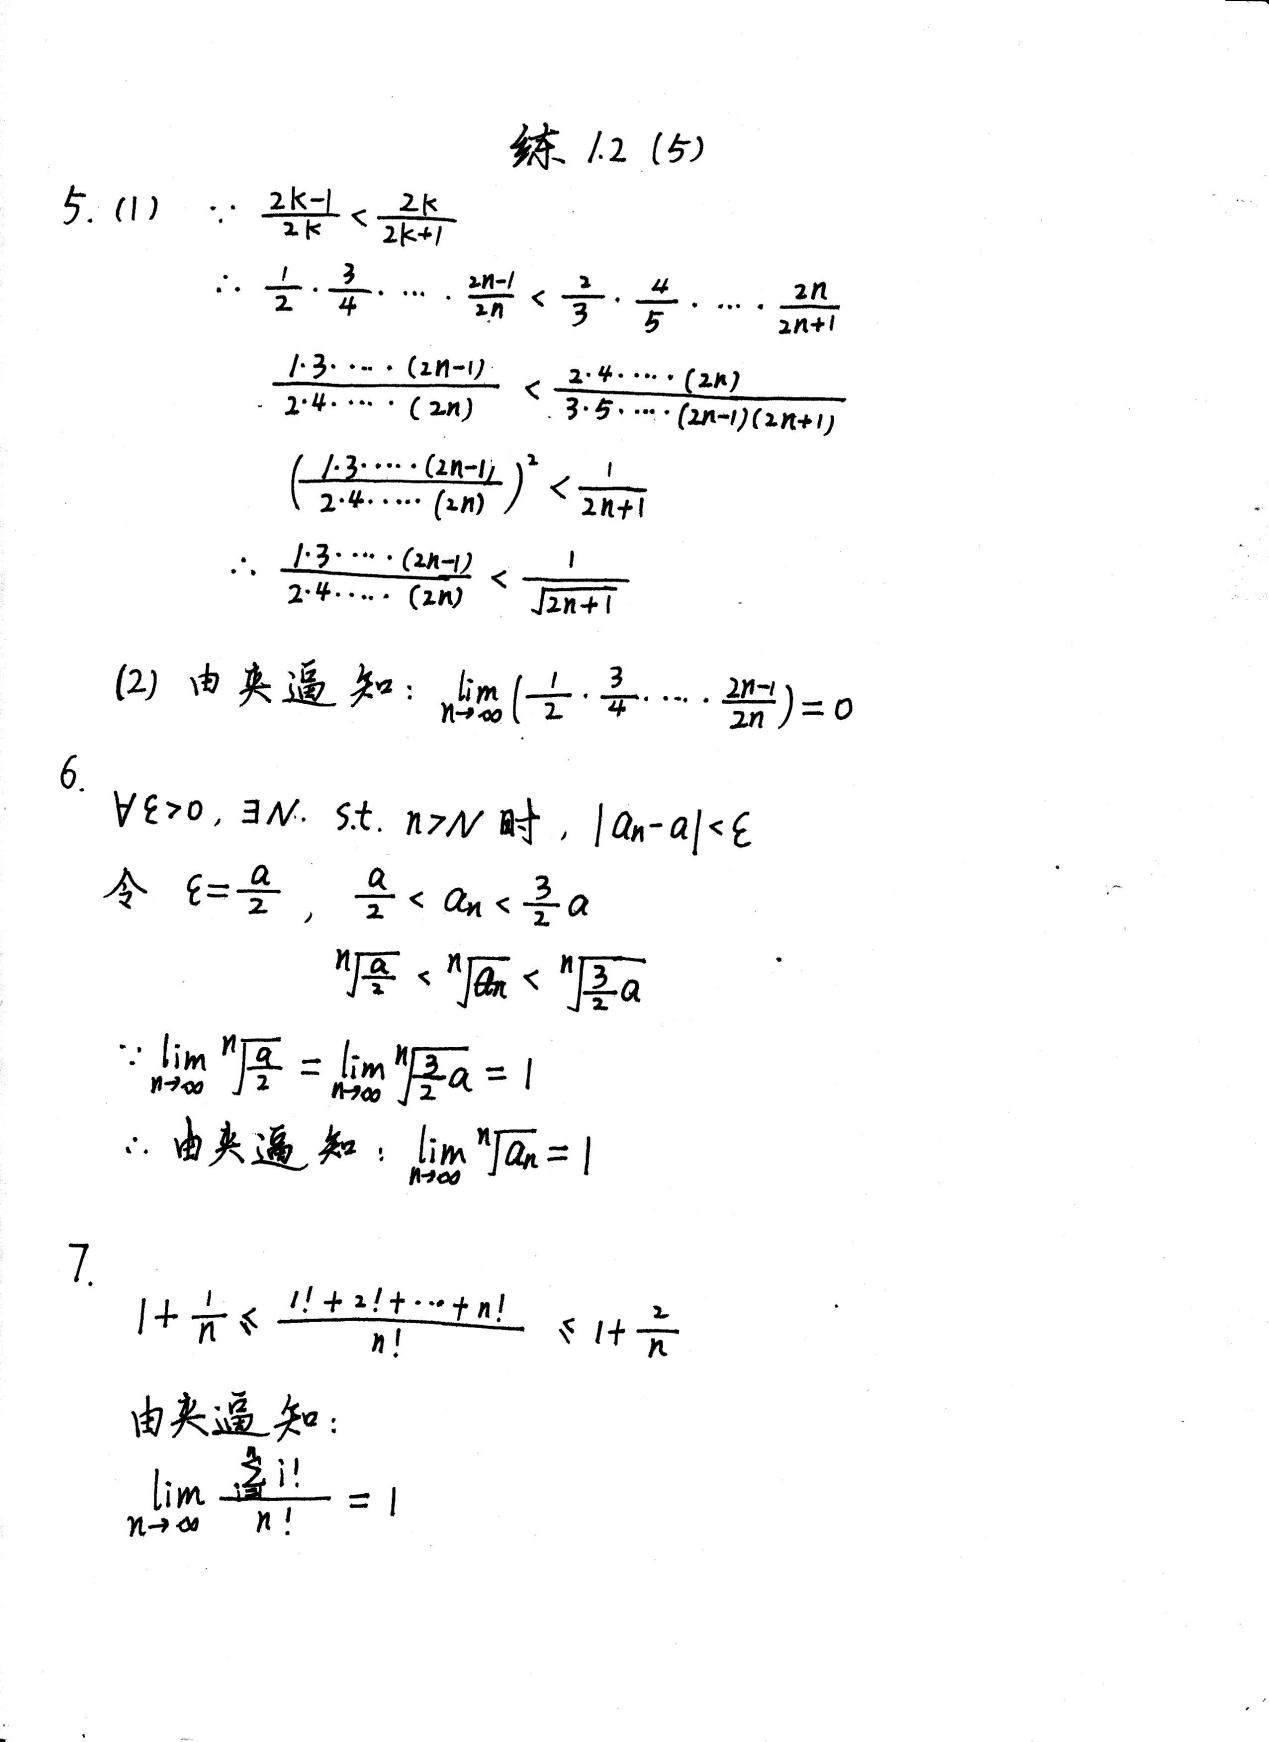 练 1.2 (5)
5. (1) ∵ \frac{2k-1}{2k} < \frac{2k}{2k+1}
∴ \frac{1}{2} · \frac{3}{4} · ··· · \frac{2n-1}{2n} < \frac{2}{3} · \frac{4}{5} · ··· · \frac{2n}{2n+1}
\frac{1·3·····(2n-1)}{2·4·····(2n)} < \frac{2·4·····(2n)}{3·5·····(2n-1)(2n+1)}
(\frac{1·3·····(2n-1)}{2·4·····(2n)})^2 < \frac{1}{2n+1}
∴ \frac{1·3·····(2n-1)}{2·4·····(2n)} < \frac{1}{\sqrt{2n+1}}
(2) 由夹逼知: \lim_{n→∞} (\frac{1}{2} · \frac{3}{4} · ··· · \frac{2n-1}{2n}) = 0
6.
∀ε>0, ∃N. s.t. n>N 时, |a_n-a|<ε
令 ε=\frac{a}{2}, \frac{a}{2} < a_n < \frac{3}{2}a
\sqrt[n]{\frac{a}{2}} < \sqrt[n]{a_n} < \sqrt[n]{\frac{3}{2}a}
∵ \lim_{n→∞} \sqrt[n]{\frac{a}{2}} = \lim_{n→∞} \sqrt[n]{\frac{3}{2}a} = 1
∴ 由夹逼知: \lim_{n→∞} \sqrt[n]{a_n} = 1
7.
1+\frac{1}{n} ≤ \frac{1!+2!+···+n!}{n!} ≤ 1+\frac{2}{n}
由夹逼知:
\lim_{n→∞} \frac{\sum_{i=1}^{n} i!}{n!} = 1